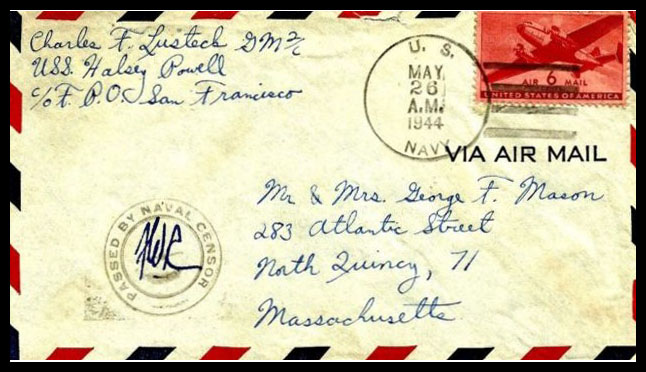 Charles F. Lusteck GM 2/c
USS. Halsey Powell
c/o F. P.O. San Francisco
U. S.
MAY
26
A.M.
1944
NAVY
6
AIR MAIL
UNITED STATES OF AMERICA
VIA AIR MAIL
Mr & Mrs. George F. Mason
283 Atlantic Street
North Quincy, 71
Massachusetts
PASSED BY NAVAL CENSOR